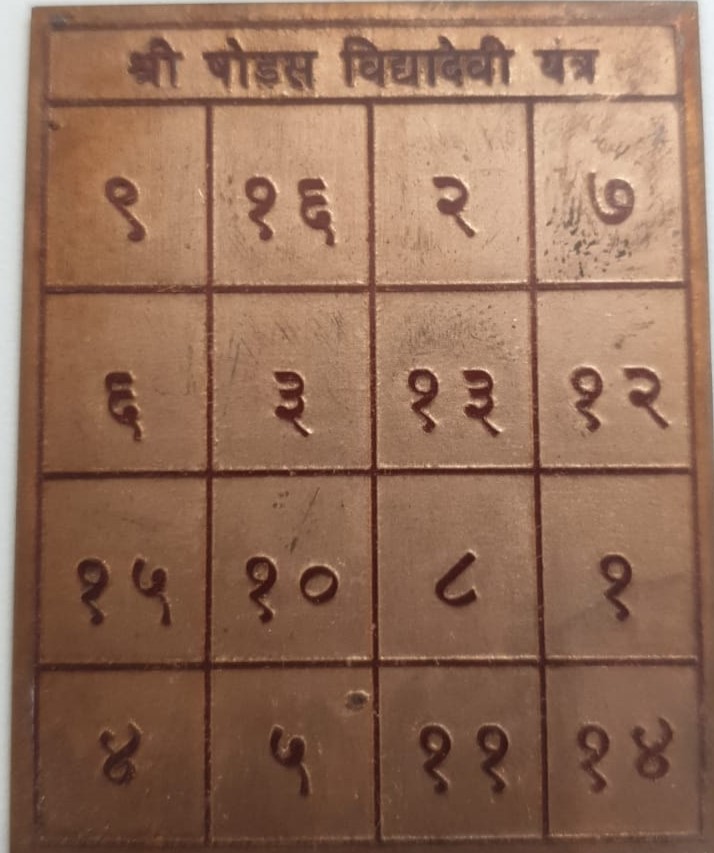 श्री षोडस विद्यादेवी यंत्र
९ १६ २ ७
६ ३ १३ १२
१५ १० ८ १
४ ५ ११ १४